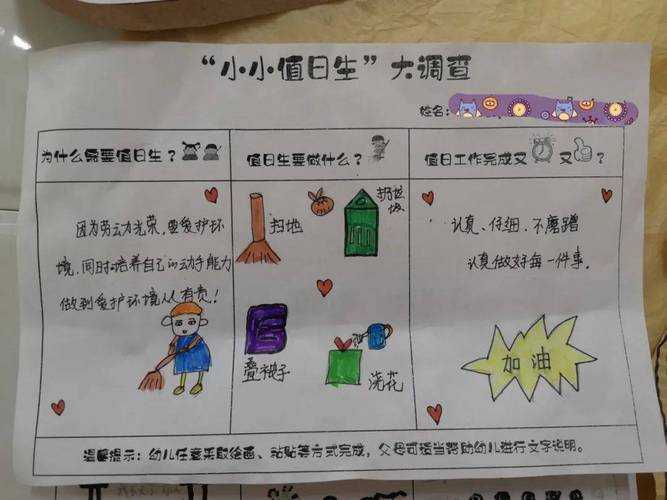 “小小值日生”大调查
姓名:
为什么需要值日生？
值日生要做什么？
值日工作完成又 又 ？
因为劳动光荣，要爱护环
境，同时培养自己的动手能力
做到爱护环境人人有责！
扫地
扔垃
圾
叠被子
浇花
认真、仔细、不磨蹭
认真做好每一件事。
加油
温馨提示：幼儿任意采取绘画、粘贴等方式完成，父母可适当帮助幼儿进行文字说明。